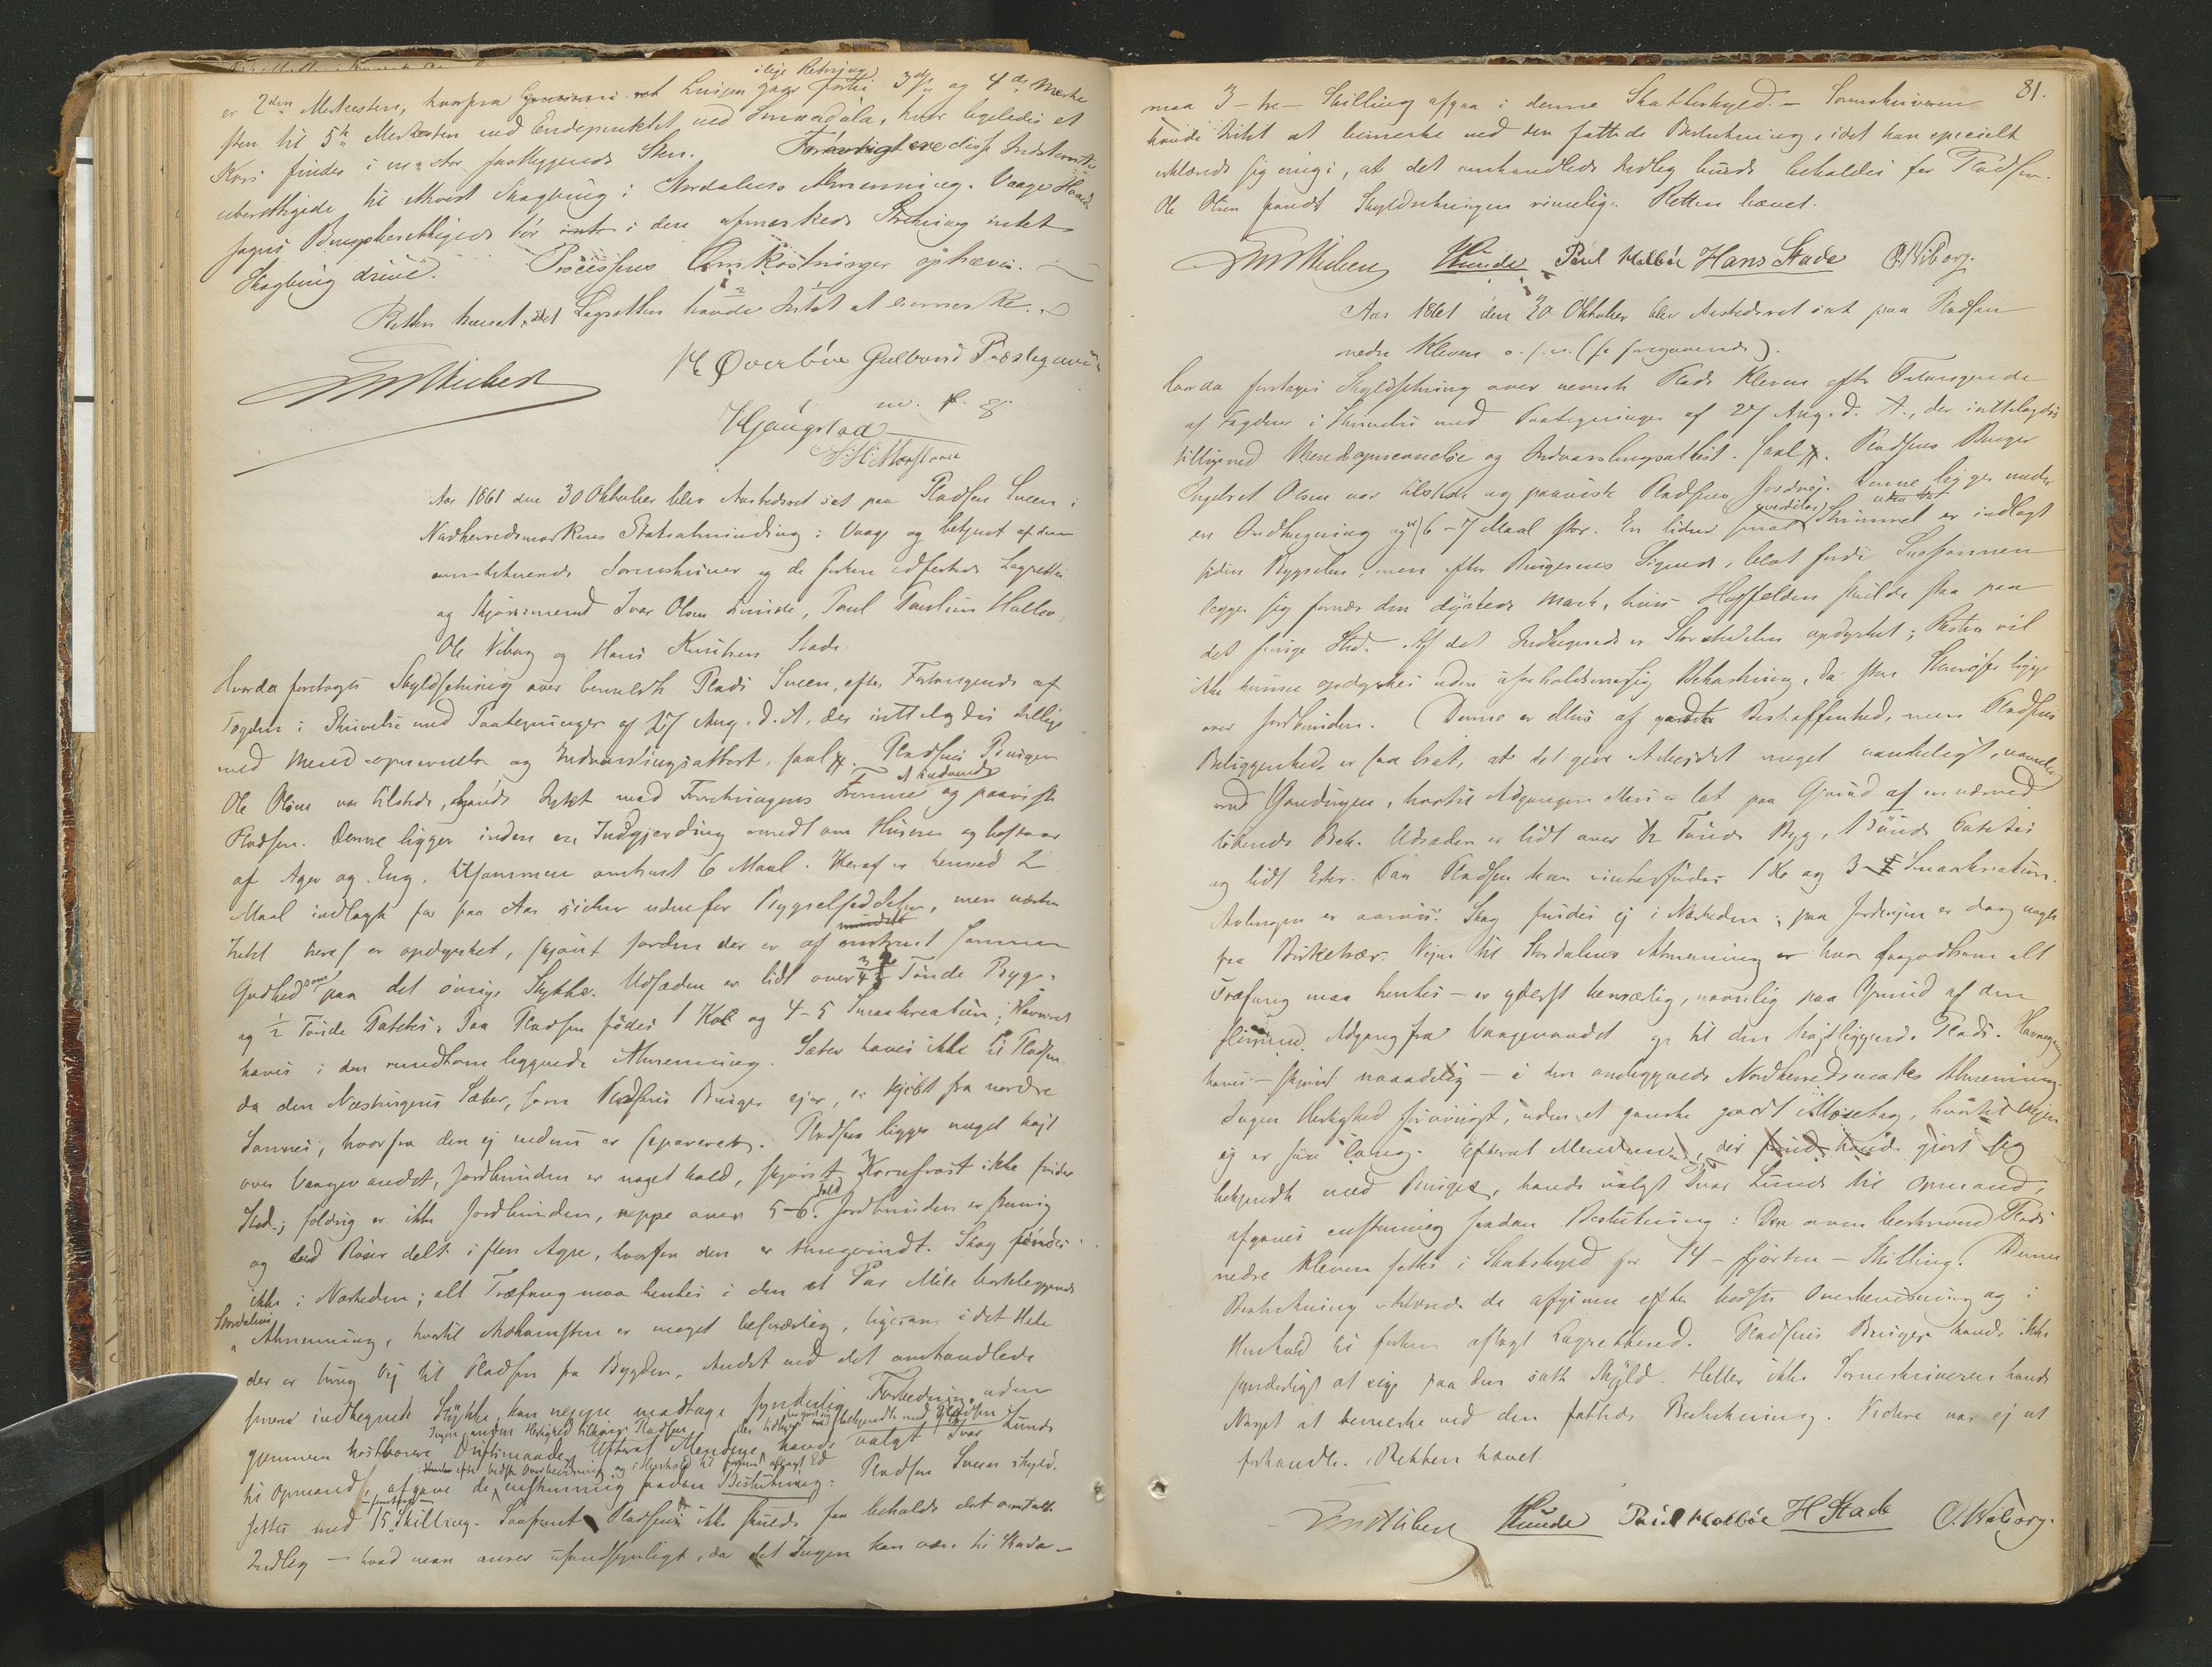 er 2den Merkesten, hvorfra Linien gaar i lige Retning forbi 3die og 4de Merke
sten til 5te Merkesten ved Endepunktet ved Smaadøla, hvor ligeledes et
Kors findes i en stor fastliggende Sten. Forøvrigt ere disse Indstevnte
uberettigede til ethvert Skogbrug i Stordalens Almenning. Vaage
Sogns Brugsberettigede bør i den afmerkede Strekning intet
Skogbrug drive. Processens Omkostninger ophæves.
Retten hævet, idet Lagretten havde Intet at bemerke.
H Øverbøe Gulbrand Prestegaard
m. f. P.
Aar 1861 den 30 Oktober blev Aastedsret sat paa Pladsen Sveen i
Nordherredsmarkens Statsalmending i Vaage og betjent af den
constituerede Sorenskriver og de forhen edfestede Lagrettes
og Skjønsmend Ivar Olsen Lunde, Paul Paulsen Holboe,
Ole Viborg og Hans Knutsen Stade.
Hvorda foretoges Skyldsetning over bemeldte Plads Sveen, efter Forlangende af
Fogden i Skrivelse med Paategninger af 27 Aug. d. A. der irettelagdes tillige
med Mend-opnevnelse og Indvarslingsattest, saal. Pladsens Bruger
Ole Olsen var tilstede, havde Intet mod Forretningens Fremme at indvende og paaviste
Pladsen. Denne ligger inden en Indgjerding rundt om Husene og bestaar
af Ager og Eng, tilsammen omtrent 6 Maal. Heraf er henved 2
Maal indlagt for faa Aar siden udenfor Bygselseddelen, men næsten
Intet heraf er opdyrket, skjønt Jorden der er af omtrent samme
Godhed som paa det øvrige Stykke. Udsæden er lidt over 3/4 Tønde Byg,
og 1/2 Tønde Potetes. Paa Pladsen fødes 1 Ko og 4-5 Smaakreature; Havnet
haves i den rundtom liggende Almenning. Sæter haves ikke til Pladsen
da den Næstvigens Sæter, som Pladsens Bruger ejer, er kjøbt fra nordre
Sannes, hvorfra den ej endnu er separeret. Pladsen ligger meget højt
over Vaagevandet, Jordbunden er noget kold, skjønt Kornfrost ikke finder
Sted; foldrig er ikke Jordbunden, neppe over 5-6 Fold. Jordbunden er stenig
og ved Røser delt i flere Agre, hvorfor den er tungvindt. Skog findes
ikke i Nærheden; alt Træfang maa hentes i den et Par Mile bortliggende
Stordalens Almenning, hvortil Adkomsten er meget besværlig, ligesom i det Hele
der er tung Vej til Pladsen fra Bygden. Andet ved det omhandlede
forrere indhegnede Stykke kan neppe modtage synderlig Forbedring, uden
gjennem kostbarere Driftsmaade. Ingen anden Herlighed tilligger Pladsen. Efterat Mendene, der tidligere have gjort sig bekjendte med Pladsen, havde valgt Ivar Lunde
til Opmand, afgave de efter bedste Overbevisning og i Henhold til forhen aflagt Ed enstemmig saadan Beslutning: Pladsen Sveen skyld-
settes med 15 - femten - Skilling. Saafremt Pladsen ikke skulde faa beholde det omtalte
Indleg - hvad man anser usandsynligt, da det Ingen kan være til Skade -
81.
maa 3 - tre - Skilling afgaa i denne Skatteskyld. - Sorenskriveren
havde Intet at bemerke ved den fattede Beslutning, idet han specielt
erklærede sig enig i, at det omhandlede Indleg burde beholdes for Pladsen.
Ole Olsen fandt Skyldsetningen rimelig. Retten hævet.
Lunde Paul Holbøe Hans Stade O. Viborg.
Aar 1861 den 30 Oktober blev Aastedsret sat paa Pladsen
nedre Kleven o. s. v. (se foregaaende).
hvorda foretoges Skyldsetning over nevnte Plads Kleven efter Forlangende
af Fogden i Skrivelse med Paategninger af 27 Aug. d. A., der irettelagdes
tilligemed Mendsopnevnelse og Indvarslingsattest. saal. Pladsens Bruger
Ingebret Olsen var tilstede og paaviste Pladsens Jordvej. Denne ligger under
en Indhegning og er 6-7 Maal stor. En liden smal overdelen Strimmel er indlagt
siden Bygselen, men efter Brugerens Sigende, blot fordi Snefonnen
legger sig paa den dyrkede Mark, hvis Hesfelden skulde staa paa
det forrige Sted. Af det Indhegnede er Størstedelen opdyrket; Resten vil
ikke kunne opdyrkes uden uforholdsmessig Bekostning, da store Stenrøser ligge
over Jordbunden. Denne er ellers af god Beskaffenhed, men Pladsens
Beliggenhed er saa brat, at det gjør Arbejdet meget vanskeligt, navnlig
ved Gjødningen, hvortil Adgangen ellers er let paa Grund af en nærved
løbende Bek. Udsæden er lidt over 1/2 Tønde Byg, 1 Tønde Potetes
og lidt Erter. Paa Pladsen kan vinterfødes 1 Ko og 3-4 Smaakreature.
Avlingen er aarvis. Skog findes ej i Nærheden; paa Jordvejen er dog nogle
faa Birketrær. Vejen til Stordalens Almenning - hvor fra godtsom alt
Træfang maa hentes - er yderst besværlig, navnlig paa Grund af den
Adgang fra Vaagevandet op til den højtliggende Plads. Havnegang
haves - skjønt maadelig - i den omliggende Nordherredsmarks Almenning.
Ingen Herlighed forøvrigt, uden et ganske godt Mosetag, hvortil Vejen
ej er saa lang. Efterat Mendene, der havde gjort sig
bekjendte med Bruget, havde valgt Ivar Lunde til Opmand,
afgaves enstemmig saadan Beslutning: Den oven beskrevne Plads
nedre Kleven settes i Skatteskyld for 14 - fjorten - Skilling. Denne
Beslutning erklærede de afgiven efter bedste Overbevisning og i
Henhold til forhen aflagt Lagrettesed. Pladsens Bruger havde ikke
synderligt at sige paa den satte Skyld. Heller ikke Sorenskriveren havde
Noget at bemerke ved den fattede Beslutning. Videre var ej at
forhandle. Retten hævet.
Lunde Paul Holbøe H Stade O. Viborg.